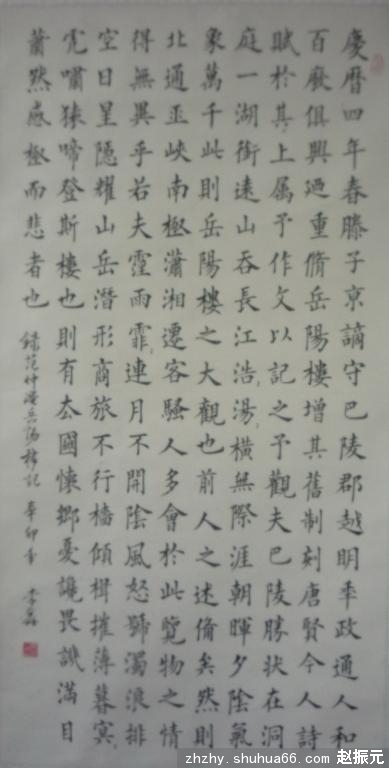 慶曆四年春滕子京謫守巴陵郡越明年政通人和
百廢俱興廼重脩岳陽樓增其舊制刻唐賢今人詩
賦於其上属予作文以記之予觀夫巴陵勝状在洞
庭一湖銜遠山吞長江浩〻湯〻橫無際涯朝暉夕陰氣
象萬千此則岳陽樓之大觀也前人之述備矣然則
北通巫峽南極瀟湘遷客騷人多會於此覽物之情
得無異乎若夫霪雨霏〻連月不開陰風怒號濁浪排
空日星隱耀山岳潛形商旅不行檣傾楫摧薄暮冥〻
虎嘯猿啼登斯樓也則有去國懷鄉憂讒畏譏滿目
蕭然感極而悲者也 錄范仲淹岳陽樓記 辛卯年 李
zhzhy.shuhua66.com 赵振元